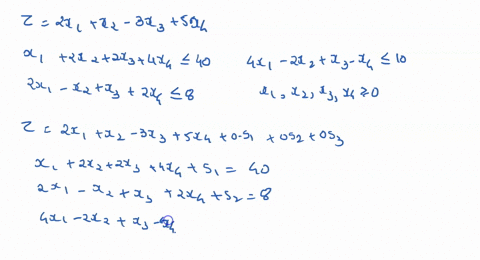 Z = 2x₁ + x₂ - 3x₃ + 5x₄
x₁ + 2x₂ + 2x₃ + 4x₄ ≤ 40 4x₁ - 2x₂ + x₃ - x₄ ≤ 10
2x₁ - x₂ + x₃ + 2x₄ ≤ 8 x₁, x₂, x₃, x₄ ≥ 0
Z = 2x₁ + x₂ - 3x₃ + 5x₄ + 0·S₁ + 0S₂ + 0S₃
x₁ + 2x₂ + 2x₃ + 4x₄ + S₁ = 40
2x₁ - x₂ + x₃ + 2x₄ + S₂ = 8
4x₁ - 2x₂ + x₃ - x₄